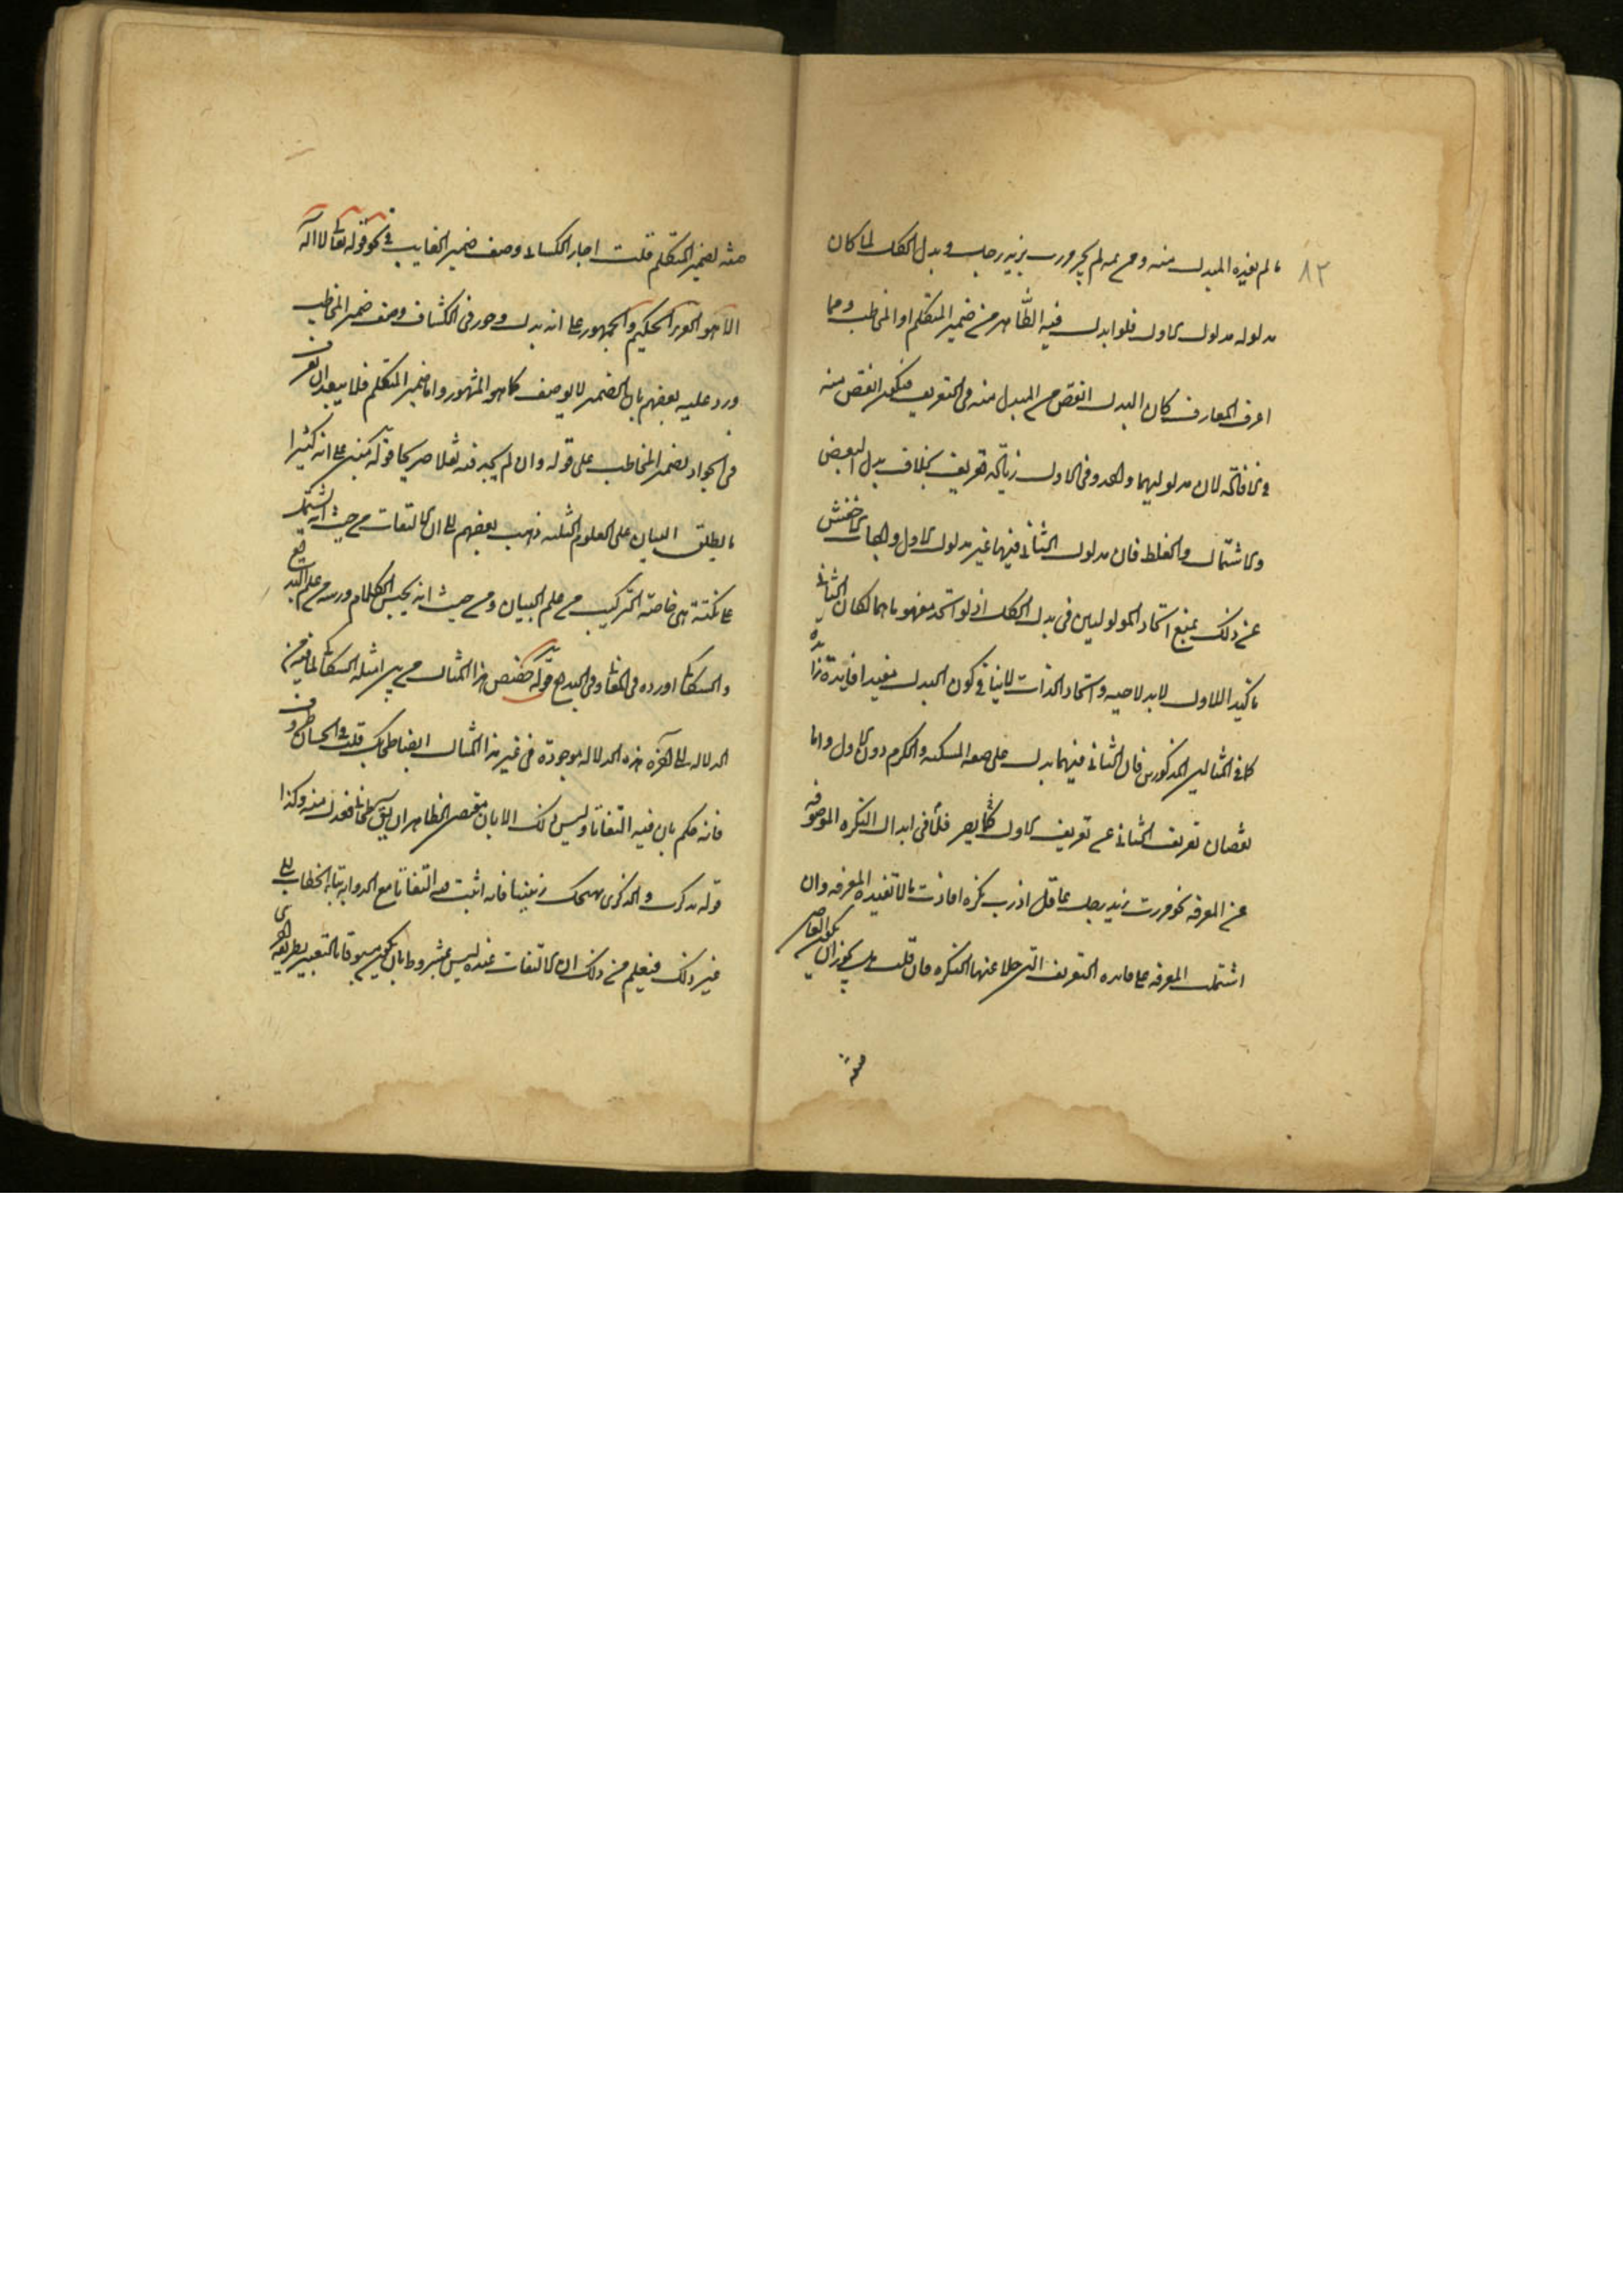 ٨٣
ما لم يفيده المبدل منه ومن ثمه لم يجز مررت بزيد رجل وبدل الكل لما كان
مدلوله مدلول الاول فلو ابدل فيه الظاهر من ضمير المتكلم او المخاطب وهما
اعرف المعارف كان البدل انقص من المبدل منه فى التعريف فيكون انقص منه
فى الافادة لان مدلوليهما واحد وفى الاول زيادة تعريف بخلاف بدل البعض
والاشتمال والغلط فان مدلول الثانى فيها غير مدلول الاول واجاب الاخفش
عن ذلك بمنع اتحاد المدلولين فى بدل الكل اذ لو اتحد مفهوماهما لكان الثانى
تاكيدا للاول لا بدلا عنه واتحاد الذات لا ينافى كون البدل مفيدا فائدة زائدة
كما فى المثالين المذكورين فان الثانى فيهما يدل على صفة المسكنة والكرم دون الاول واما
نقصان تعريف الثانى عن تعريف الاول فلا يضر كما فى ابدال النكرة الموصوفة
عن المعرفة نحو مررت بزيد رجل عاقل اذ رب نكرة افادت ما لا تفيده المعرفة وان
اشتملت المعرفة على فايدة التعريف التى خلا عنها النكرة فان قلت هل يجوز ان يكون العاصى
صفة
صفة لضمير المتكلم قلت اجاز الكسائى وصف ضمير الغايب فى نحو قوله تعالى لا اله
الا هو العزيز الحكيم والجمهور على انه بدل وجوز فى الكشاف وصف ضمير المخاطب
ورد عليه بعضهم بان الضمير لا يوصف كما هو المشهور واما ضمير المتكلم فلا يبعد ان تعرف
فى الجواز بضمير المخاطب على قوله وان لم يجد فيه نقلا صريحا قوله مبنى على انه كثيرا
ما يطلق البيان على العلوم الثلثة ذهب بعضهم الى ان الالتفات من حيث انه يشتمل
على نكتة هى خاصة التركيب من علم البيان ومن حيث انه يحسن الكلام ويزينه من علم البديع
والسكاكى اورده فى المعانى وفى البديع قوله خصص هذا المثال من بين امثلة السكاكى لما فيه من
الدلالة الى آخره هذه الدلالة موجودة فى غير هذا المثال ايضا طحا بك قلب فى الحسان طروب
فانه حكم بان فيه التفاتا وليس ذلك الا بان مقتضى الظاهر ان يقول طحا بى فعدل منه وكذا
قوله تذكرت والذكرى تهيجك زينبا فانه اثبت فيه التفاتا مع الدوابة بتاء الخطاب الى
غير ذلك فيعلم من ذلك ان الالتفات عنده ليس مشروطا بان يكون مسبوقا بالتعبير بطريق اخرى